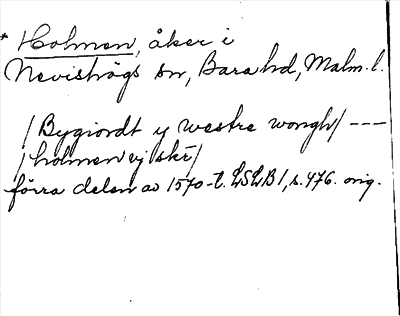 * Holmen, åker i
Nevishögs sn, Bara hd, Malm. l.
/Bygiordt y westre wongh/ ---
/holmen ej skr/
förra delen av 1570-t. LSLB 1, s. 476. orig.